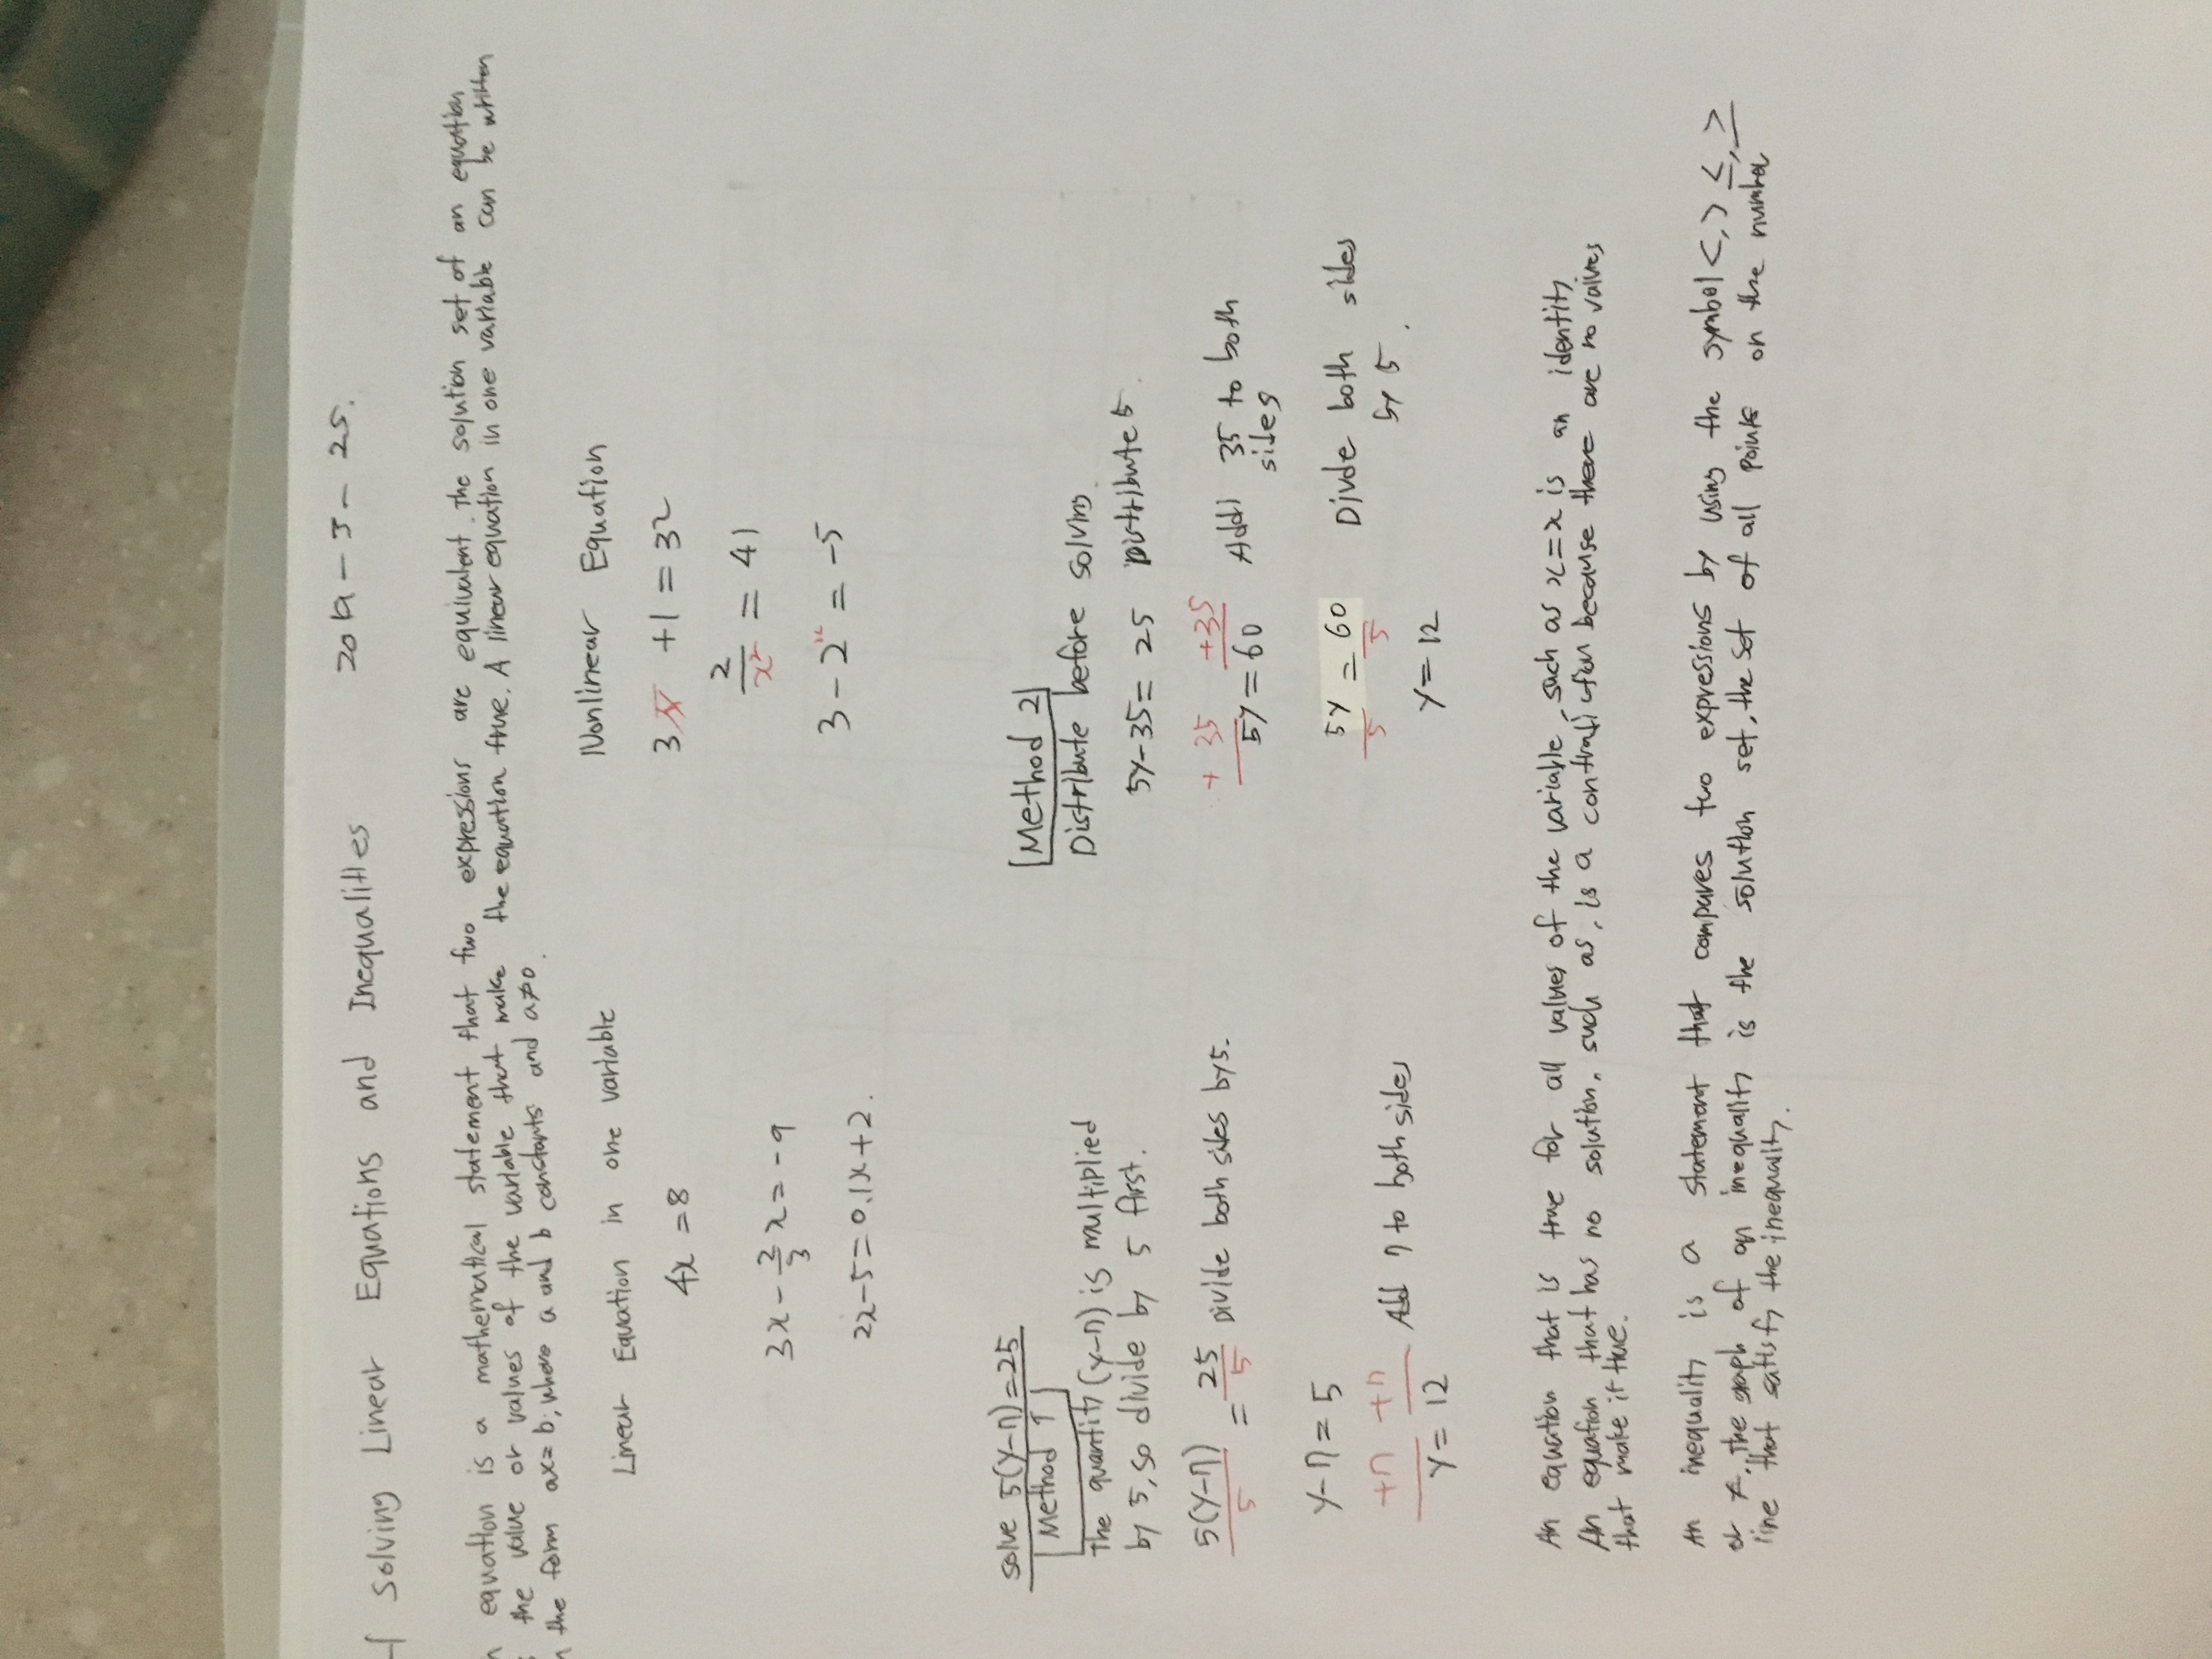 Solving Linear Equations and Inequalities
equation is a mathematical statement that two expressions are equivalent. The solution set of an equation
the value or values of the variable that make the equation true. A linear equation in one variable can be written
the form ax=b, where a and b constants and a≠0.
Linear Equation in one variable Nonlinear Equation
4x=8 3√x +1=32
3x-2/3x=-9 2/x²=41
2x-5=0.1x+2. 3-2ˣ=-5
solve 5(y-7)=25
Method 1
The quantity (y-7) is multiplied
by 5, so divide by 5 first.
5(y-7)/5 = 25/5 Divide both sides by 5.
y-7=5
+7 +7 Add 7 to both sides
y=12
Method 2
Distribute before solving.
5y-35=25 Distribute 5.
+35 +35
5y=60 Add 35 to both
sides
5y/5=60/5 Divde both sides
by 5.
y=12
An equation that is true for all values of the variable, such as x=x is an identity
An equation that has no solution, such as, is a contradiction because there are no values
that make it true.
An inequality is a statement that compares two expressions by using the symbol <, > ≤, ≥
or ≠. The graph of an inequality is the solution set, the set of all points on the number
line that satisfy the inequality.